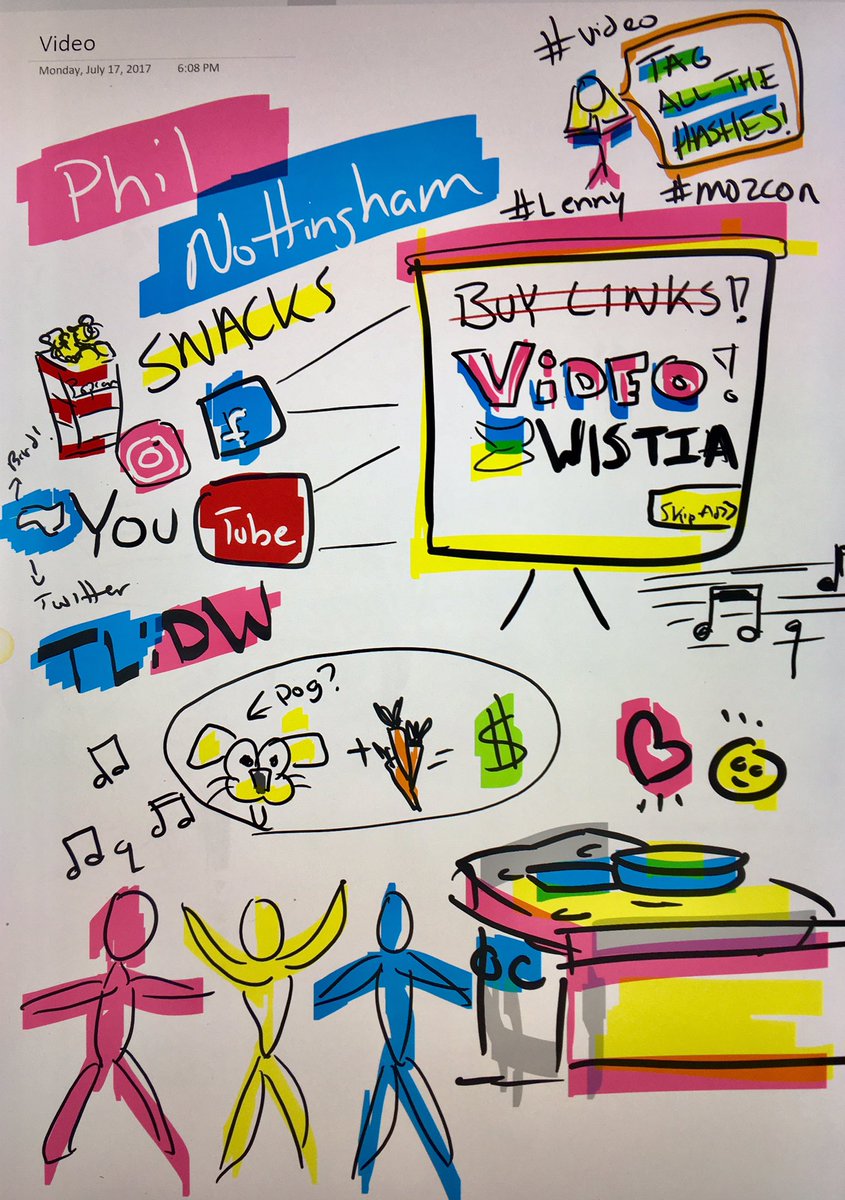 Video
Monday, July 17, 2017 6:08 PM
#video
TAG
ALL THE
HASHES!
#Lenny #mozcon
Phil
Nottingham
SNACKS
BUY LINKS!!
ViDEO!
WISTIA
Skip Ad>>
f
Bird!
You Tube
Twitter
TL;DW
Dog?
+ = $
BC